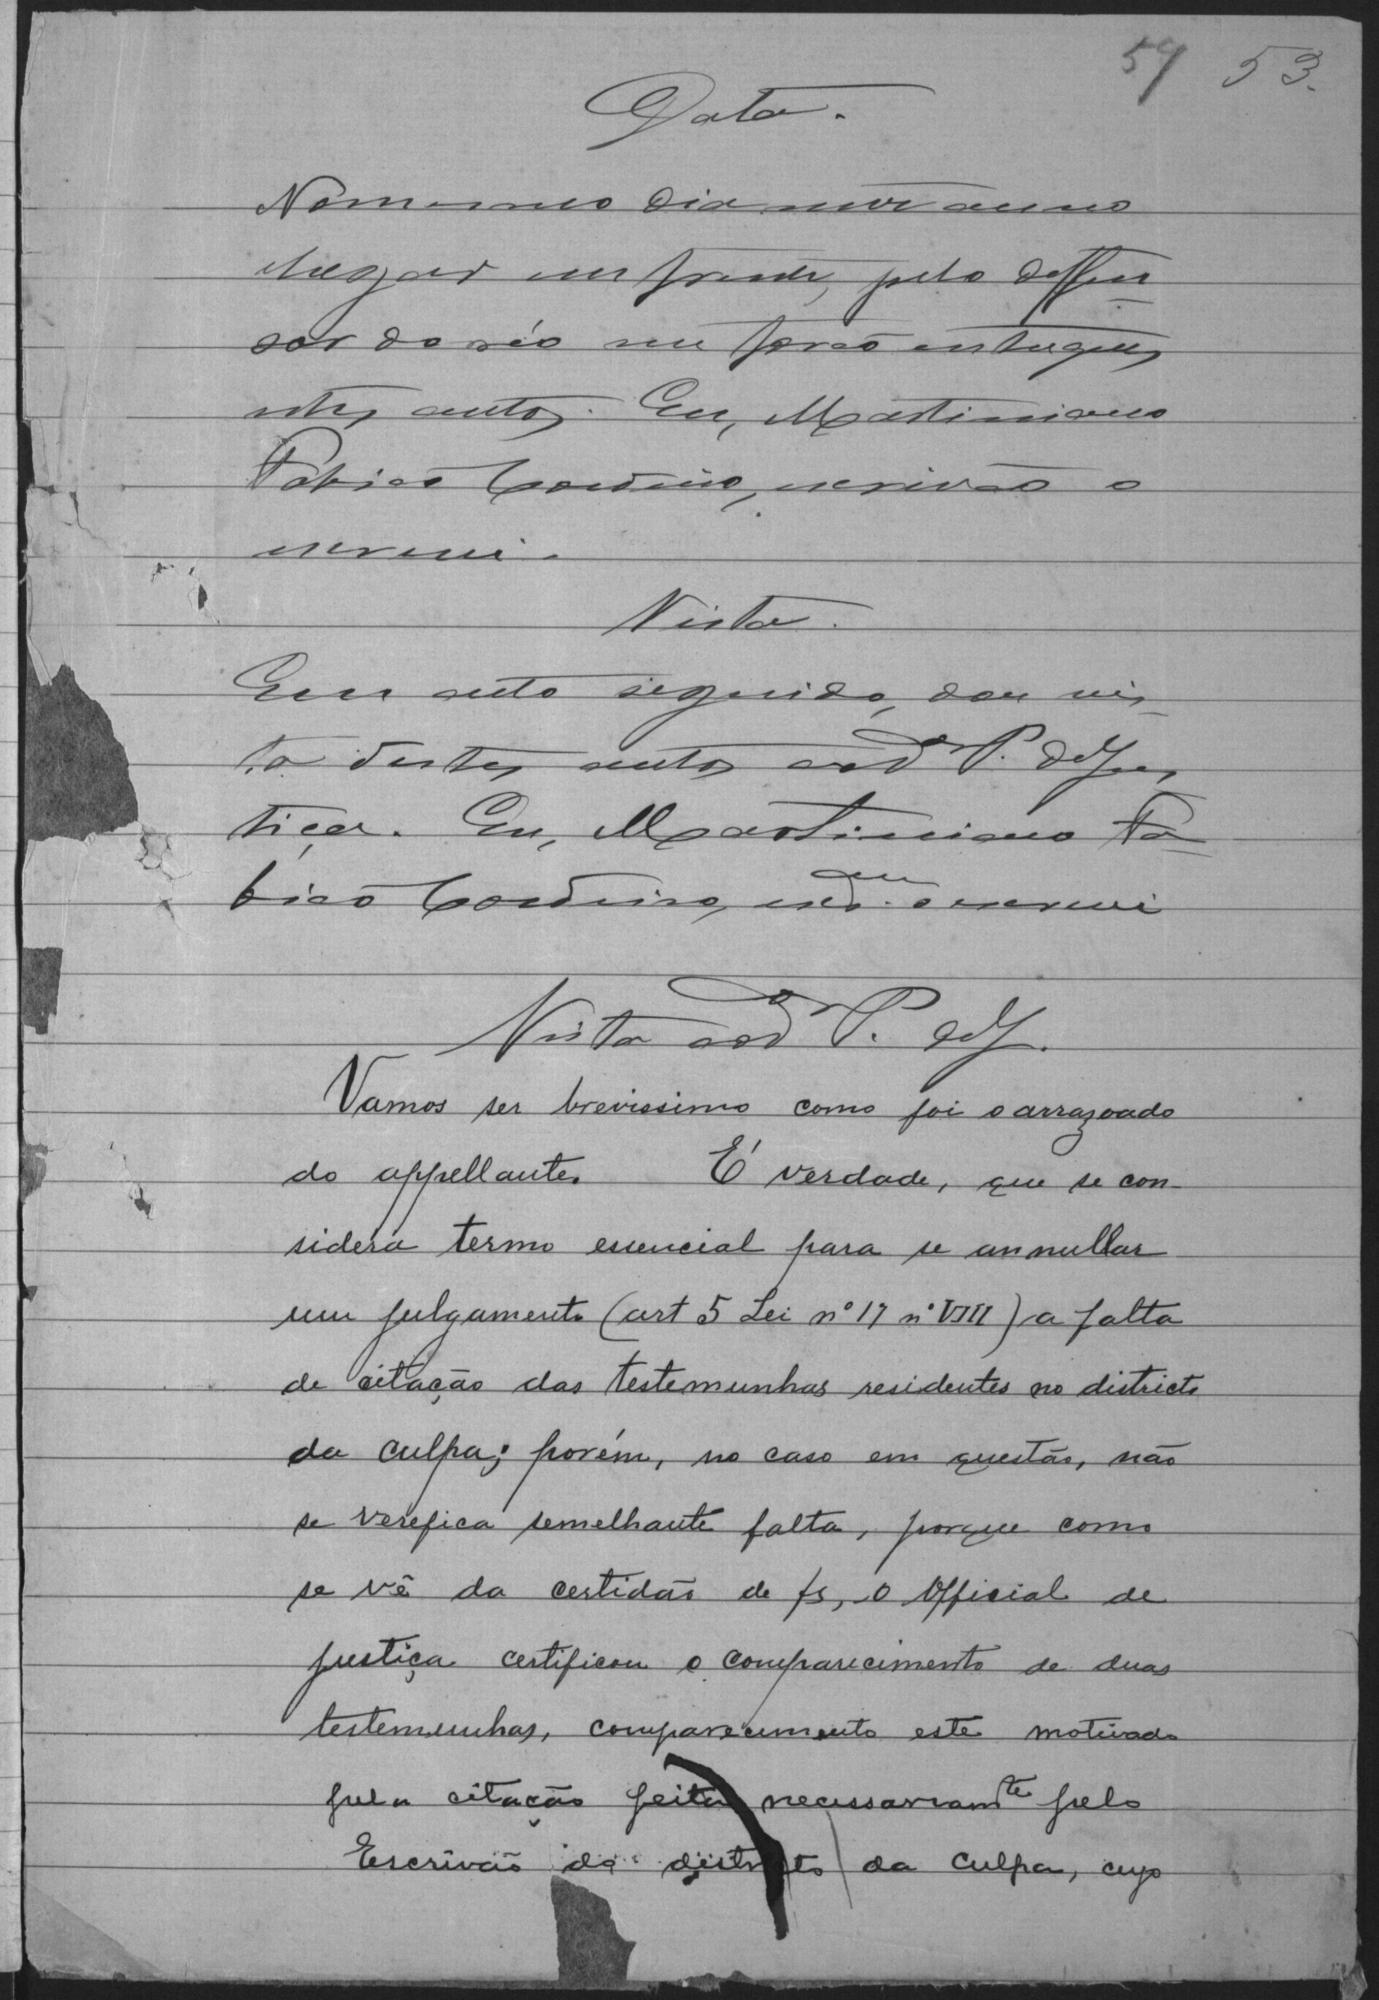 57 53.
Data.
No mesmo dia mez anno
lugar em frente, pelo deffen
sor do réo me forão entregues
estes autos. Eu, Martiniano
Fabião Cordeiro, escrivão o
escrevi.
Vista.
Em acto seguido, dou vis
ta destes autos ao Dr P. de Jus
tiça. Eu, Martiniano Fa
bião Cordeiro, escram o escrevi
Vista ao Dr P. de J.
Vamos ser brevissimo como foi o arrazoado
do appellante. É verdade, que se con-
sidera termo essencial para se annullar
um julgamento (art 5 Lei nº 17 nº VIII) a falta
de citação das testemunhas residentes no districto
da culpa; porém, no caso em questão, não
se verefica semelhante falta, porque como
se vê da certidão de fs, o Official de
justiça certificou o comparecimento de duas
testemunhas, comparecimento este motivado
pela citação feita necessariamte pelo
Escrivão do districto da culpa, cujo